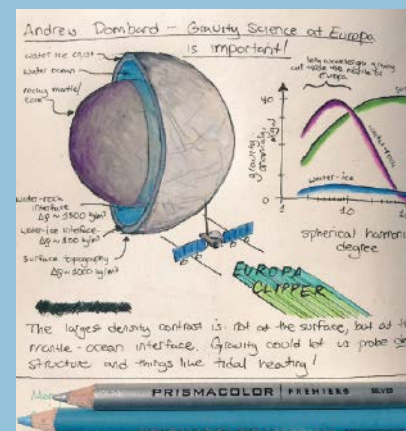 Andrew Dombard - Gravity Science at Europa
is important!
water ice crust
water ocean
rocky mantle/
core
water-rock
interface
Δρ ~ 1500 kg/m³
water-ice interface
Δρ ~ 100 kg/m³
surface topography
Δρ ~ 1000 kg/m³
long wavelength gravity
Europa
gravity
anomaly,
mgal
40
surf
water-rock
water-ice
1
10
spherical harmonic
degree
EUROPA
CLIPPER
The largest density contrast is not at the surface, but at th
mantle-ocean interface. Gravity could let us probe de
structure and things like tidal heating!
PRISMACOLOR PREMIER SILVER
PRISMACOLOR